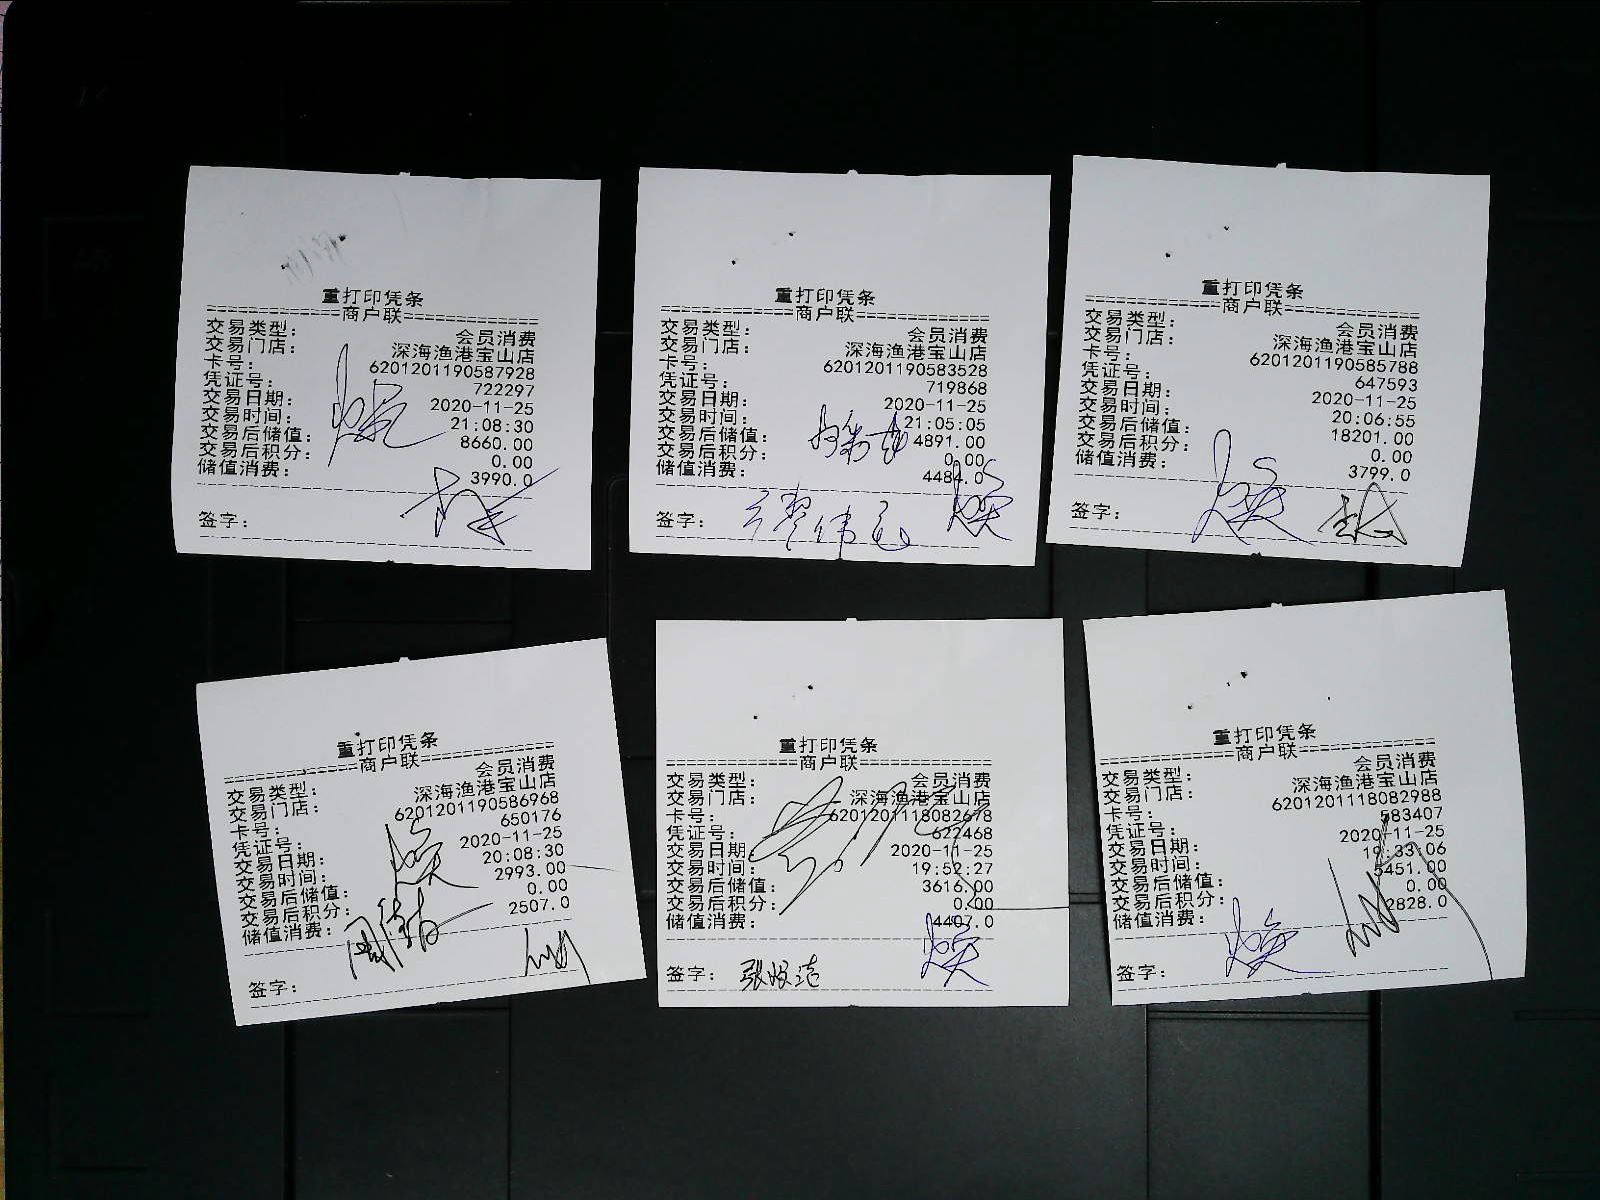 重打印凭条
商户联
交易类型: 会员消费
交易门店: 深海渔港宝山店
卡号: 6201201190587928
凭证号: 722297
交易日期: 2020-11-25
交易时间: 21:08:30
交易后储值: 8660.00
交易后积分: 0.00
储值消费: 3990.0
签字:
重打印凭条
商户联
交易类型: 会员消费
交易门店: 深海渔港宝山店
卡号: 6201201190583528
凭证号: 719868
交易日期: 2020-11-25
交易时间: 21:05:05
交易后储值: 4891.00
交易后积分: 0.00
储值消费: 4484.0
签字:
重打印凭条
商户联
交易类型: 会员消费
交易门店: 深海渔港宝山店
卡号: 6201201190585788
凭证号: 647593
交易日期: 2020-11-25
交易时间: 20:06:55
交易后储值: 18201.00
交易后积分: 0.00
储值消费: 3799.0
签字:
重打印凭条
商户联
交易类型: 会员消费
交易门店: 深海渔港宝山店
卡号: 6201201190586968
凭证号: 650176
交易日期: 2020-11-25
交易时间: 20:08:30
交易后储值: 2993.00
交易后积分: 0.00
储值消费: 2507.0
签字:
重打印凭条
商户联
交易类型: 会员消费
交易门店: 深海渔港宝山店
卡号: 6201201118082678
凭证号: 622468
交易日期: 2020-11-25
交易时间: 19:52:27
交易后储值: 3616.00
交易后积分: 0.00
储值消费: 4407.0
签字:
重打印凭条
商户联
交易类型: 会员消费
交易门店: 深海渔港宝山店
卡号: 6201201118082988
凭证号: 583407
交易日期: 2020-11-25
交易时间: 19:33:06
交易后储值: 5451.00
交易后积分: 0.00
储值消费: 2828.0
签字: